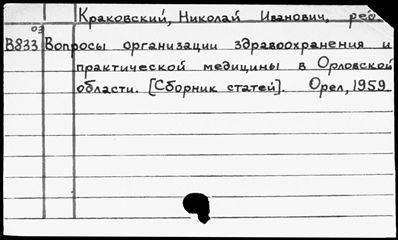 Краковский, Николай Иванович, ред.
03
В833 Вопросы организации здравоохранения и
практической медицины в Орловской
области. [Сборник статей]. Орел, 1959